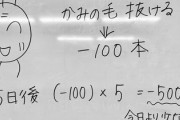 かみの毛 抜ける
-100 本
日後 (-100) × 5 = -500
今日より